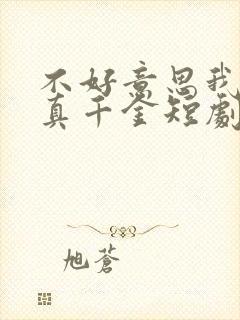 不好意思我
真千金短劇
旭蒼